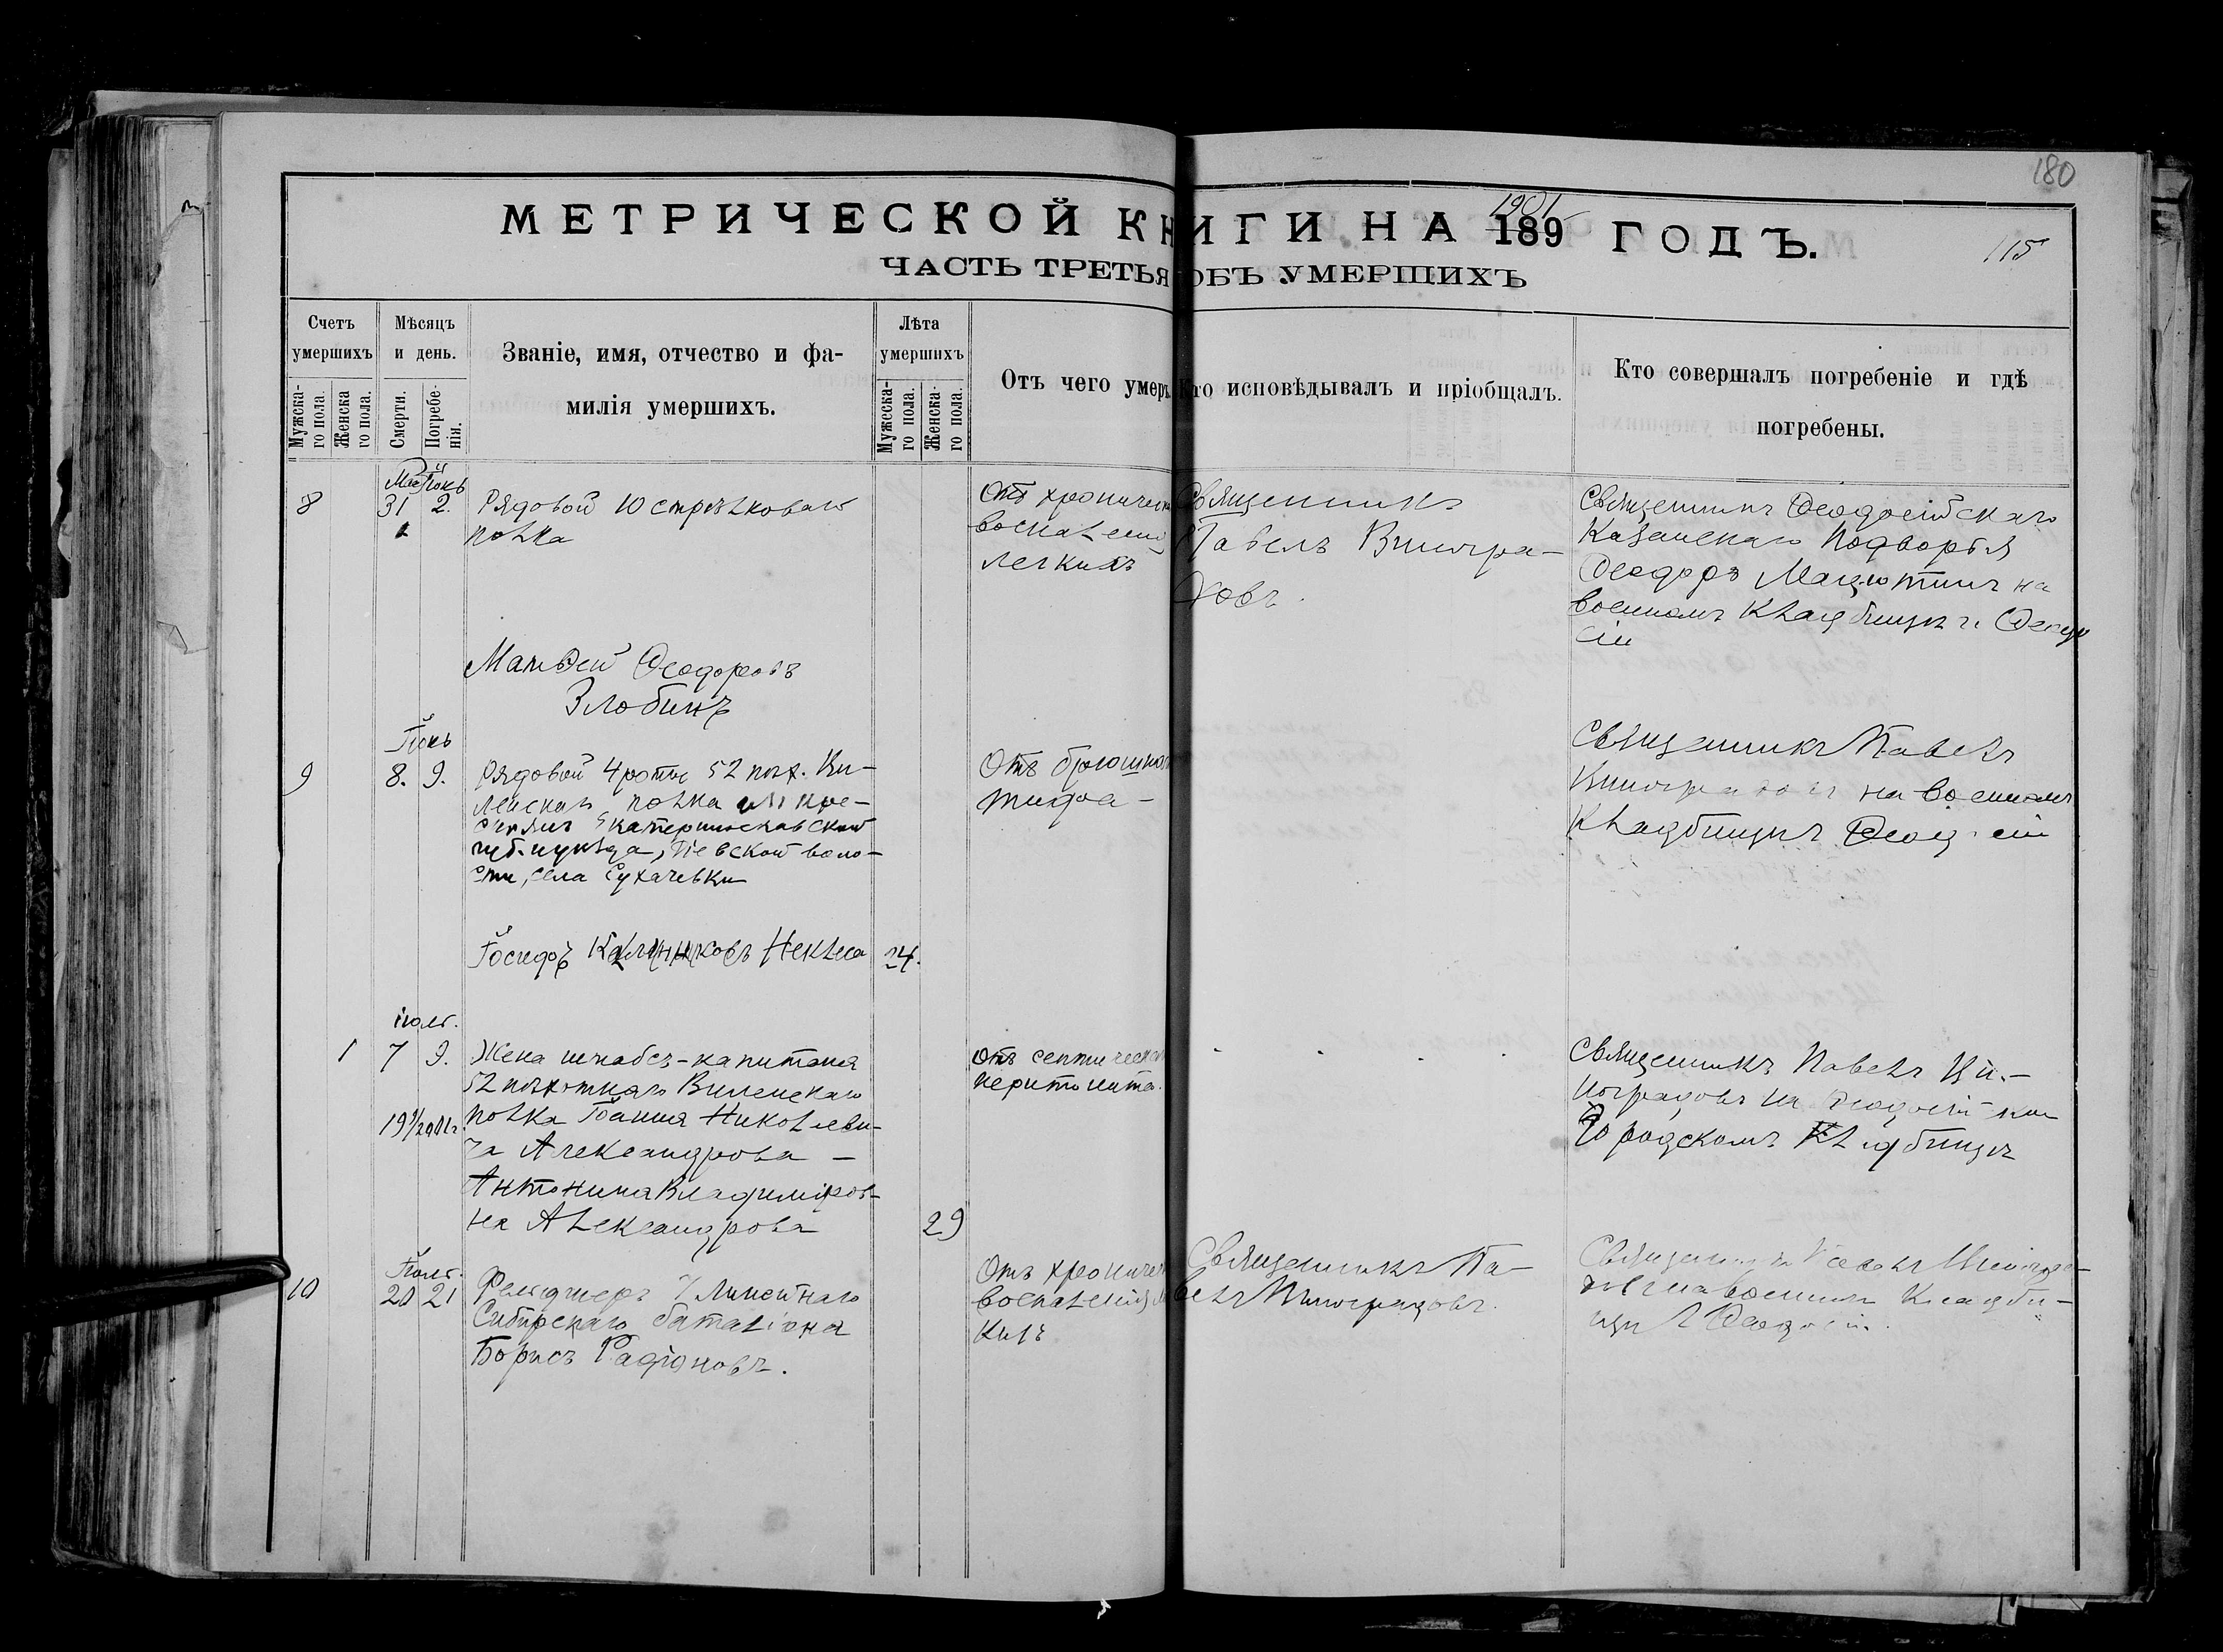 180
МЕТРИЧЕСКОЙ КНИГИ НА 189 ГОДЪ.
1901
115
ЧАСТЬ ТРЕТЬЯ ОБЪ УМЕРШИХЪ
Счетъ умершихъ
Мужска-го пола.
Женска го пола.
Мѣсяцъ и день.
Смерти.
Погребе-нія.
Званіе, имя, отчество и фа-
милія умершихъ.
Лѣта умершихъ
Мужеска-го пола.
Женска-го пола.
Отъ чего умеръ.
Кто исповѣдывалъ и пріобщалъ.
Кто совершалъ погребеніе и гдѣ
погребены.
8
31 2.
Рядовой 10 стрѣлковаго
полка
Матѳей Ѳеодоровъ
Злобинъ
Отъ хроническ
воспаленія
легкихъ
Священникъ
Павелъ Виногра-
довъ.
Священникъ Ѳеодосійскаго
Казанскаго Подворья
Ѳеодоръ на
военномъ кладбищѣ г. Ѳеодо
сіи
Іюнь
9
8. 9.
Рядовой 4 роты 52 пѣх. Ви-
ленскаго полка изъ кре-
стьянъ Екатеринославской
губ. и уѣзда, воло-
сти, села Сухачевки
Іосифъ Калинниковъ Неклеса
24.
Отъ брюшно
тифа-
Священникъ Павелъ
Виноградовъ на военномъ
кладбищѣ Ѳеодосіи
іюля.
1
7 9.
19 г.
Жена штабсъ-капитана
52 пѣхотнаго Виленскаго
полка Іоанна Николаеви-
ча Александрова -
Антонина Владиміров-
на Александрова
29
Отъ септическ
перитонита.
Священникъ Павелъ Ви-
ноградовъ на Ѳеодосійском
Городскомъ кладбищѣ
Іюля.
10
20 21
Фельдшеръ Линейнаго
Сибирскаго баталіона
Борисъ Радіоновъ.
Отъ хроничес
воспаленія
кихъ
Священникъ Па-
велъ Виноградовъ.
Священникъ Павелъ Виногра-
довъ на военномъ кладби-
щѣ г. Ѳеодосіи.